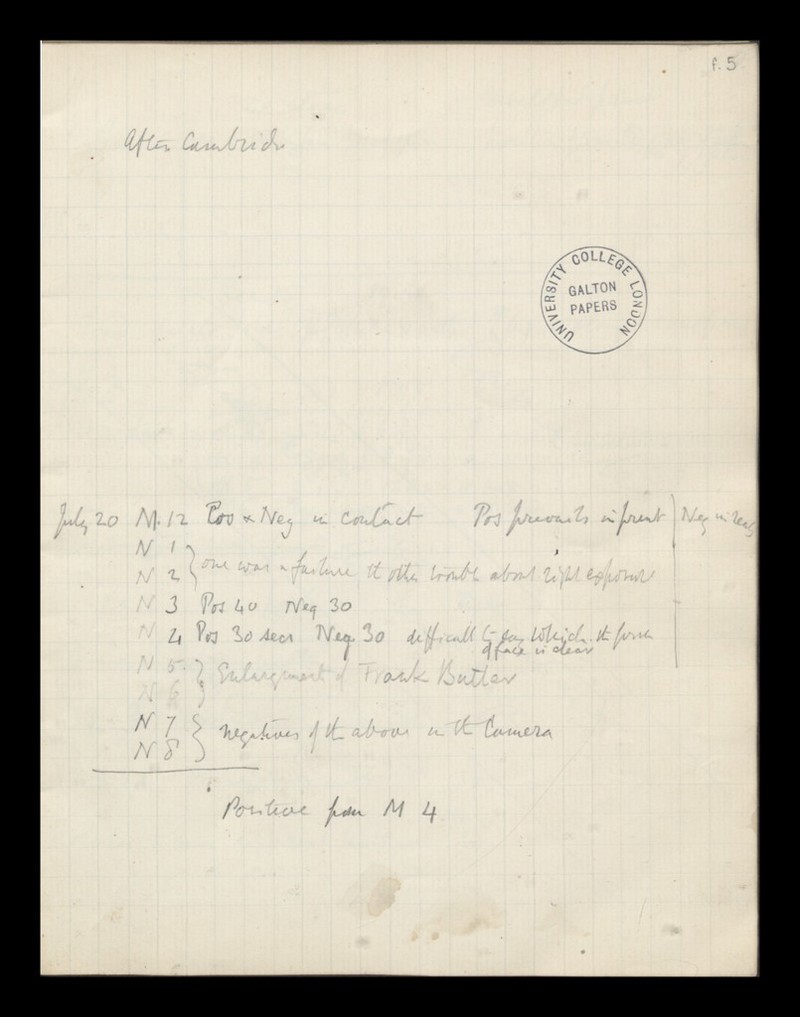 f. 5
After Cambridge
UNIVERSITY COLLEGE LONDON
GALTON
PAPERS
July 20 M. 12 Pos & Neg in contact Pos prevails in front Neg in rear
N 1
N 2 } one was a failure, the other trouble about right exposure
N 3 Pos 40 Neg 30
N 4 Pos 30 secs Neg 30 difficult to say which the
of face is clear
N 5
N 6 } Enlargement of Frank Butler
N 7
N 8 } negatives of the above in the Camera
Positive from M 4